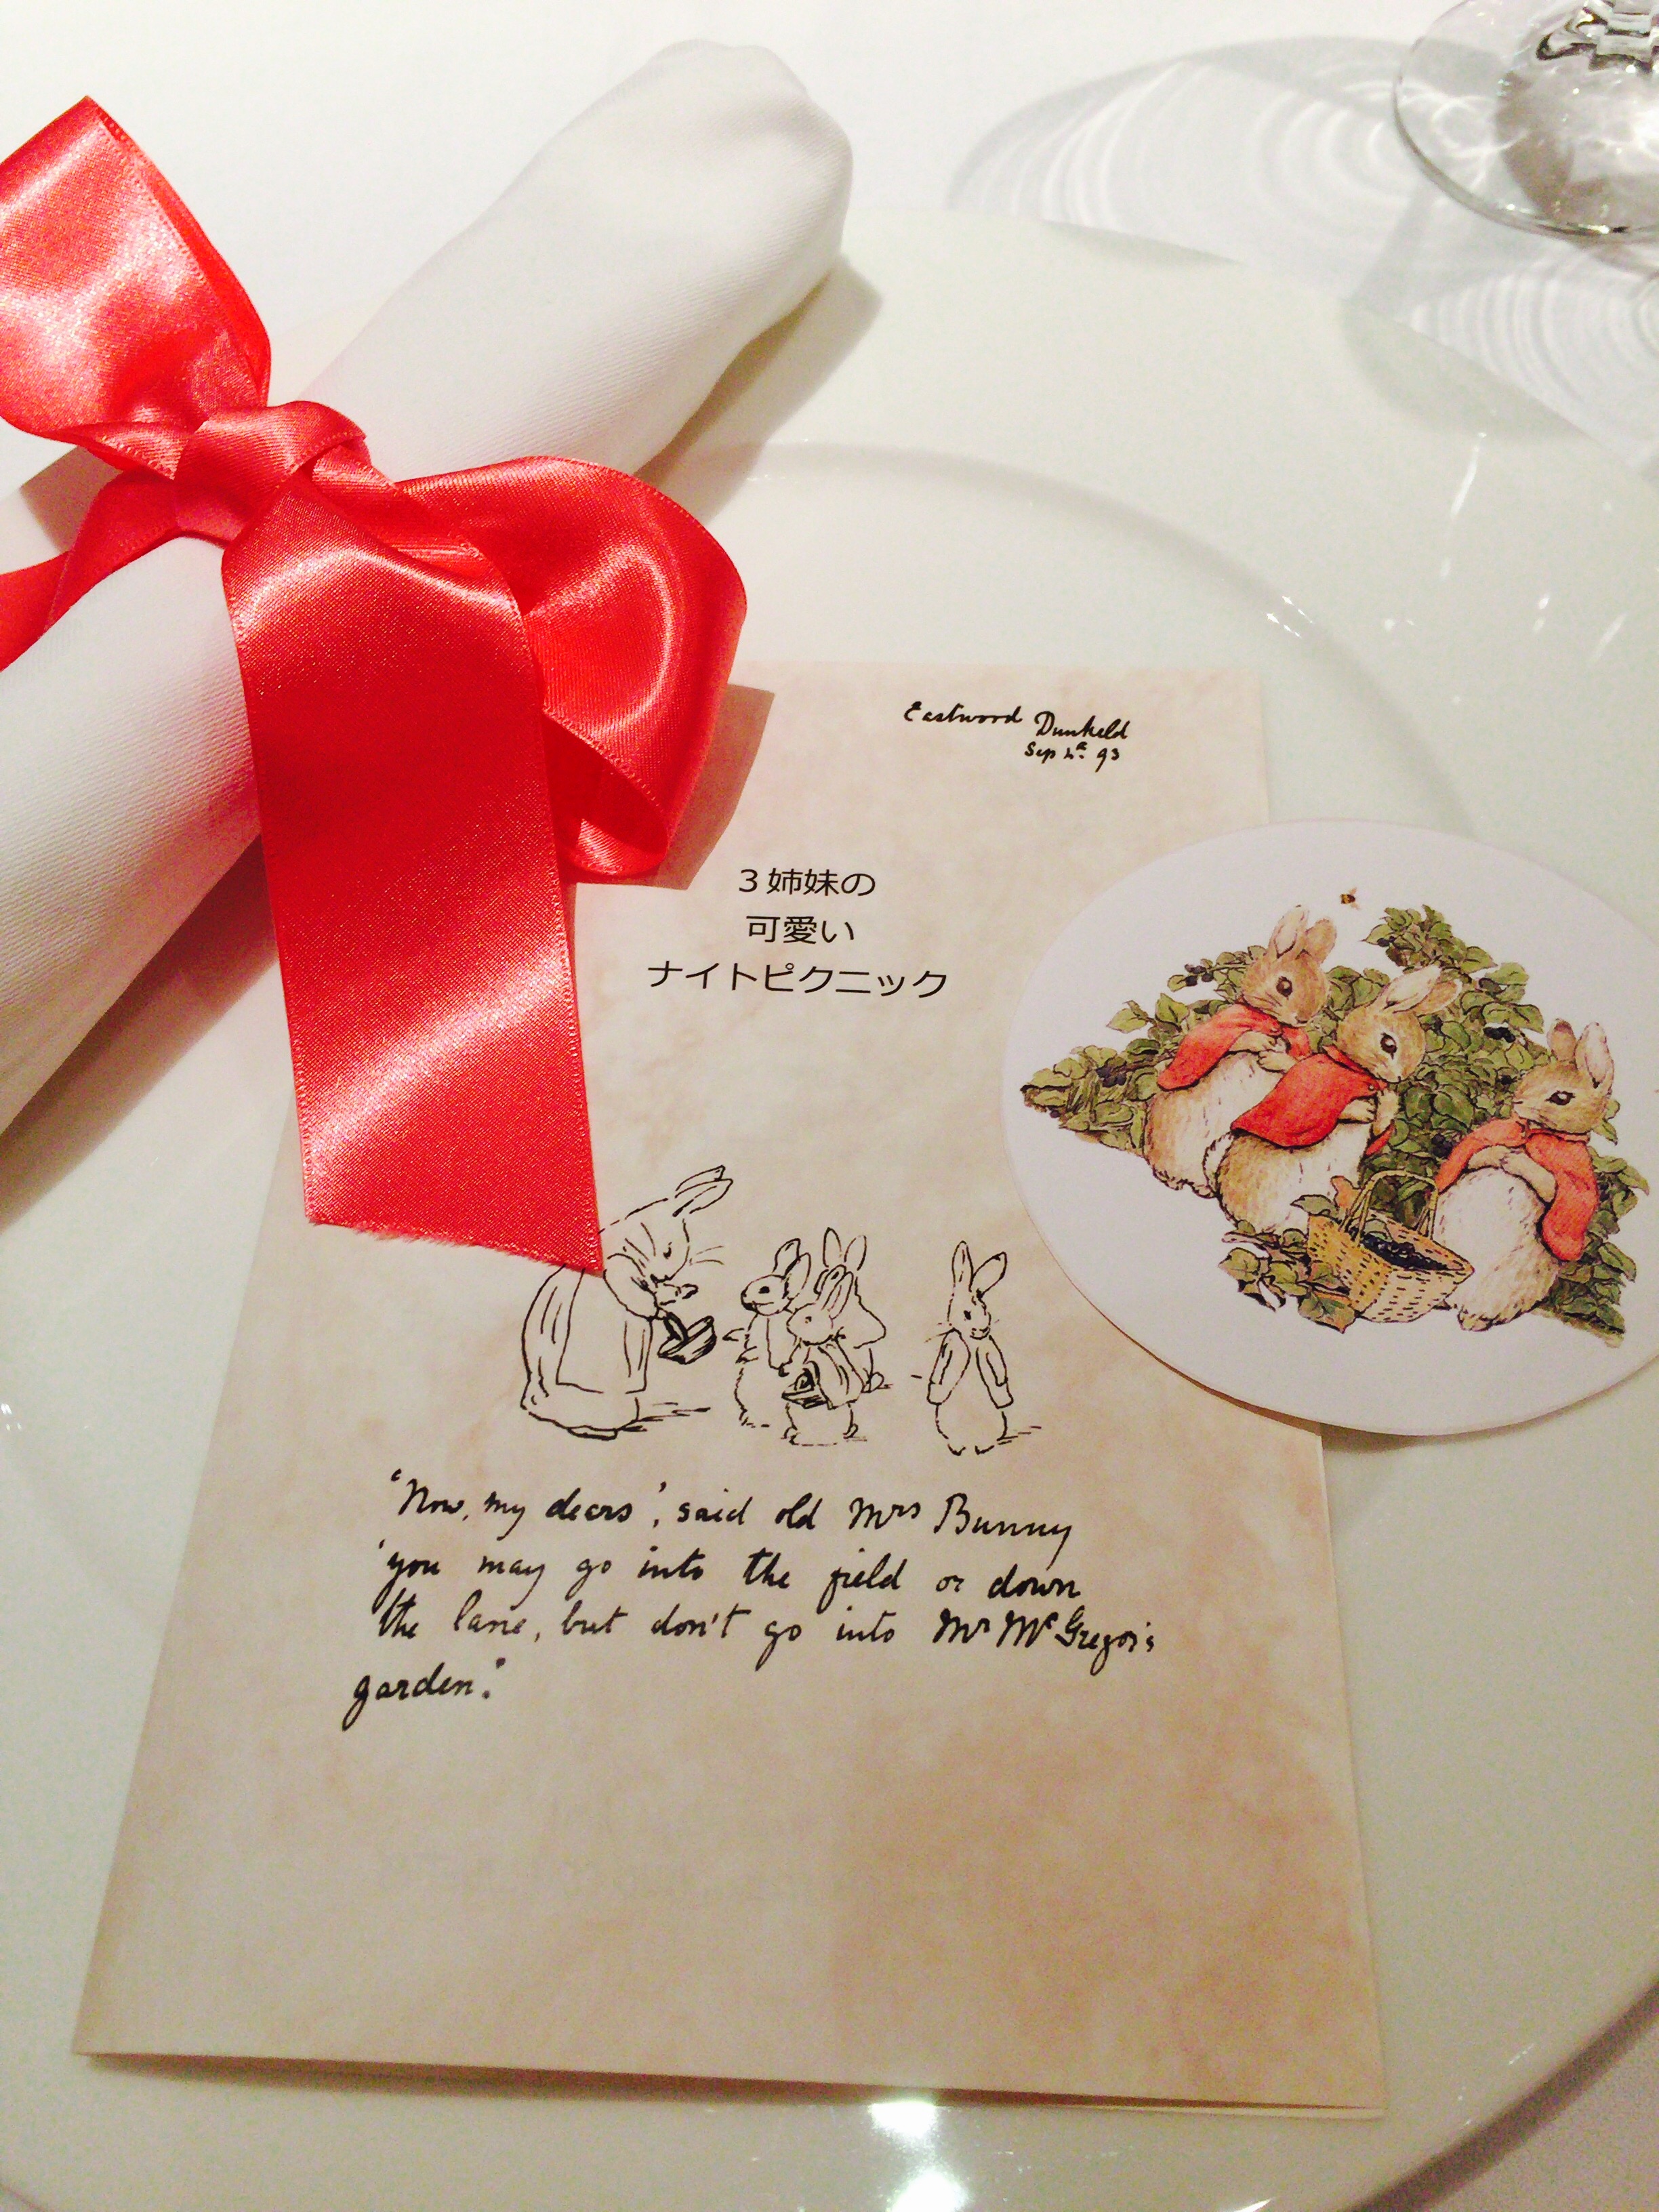 Eastwood Dunkeld
Sep 4th 93
３姉妹の
可愛い
ナイトピクニック
'Now, my dears', said old Mrs Bunny
'you may go into the field or down
the lane, but don't go into Mr McGregor's
garden.'